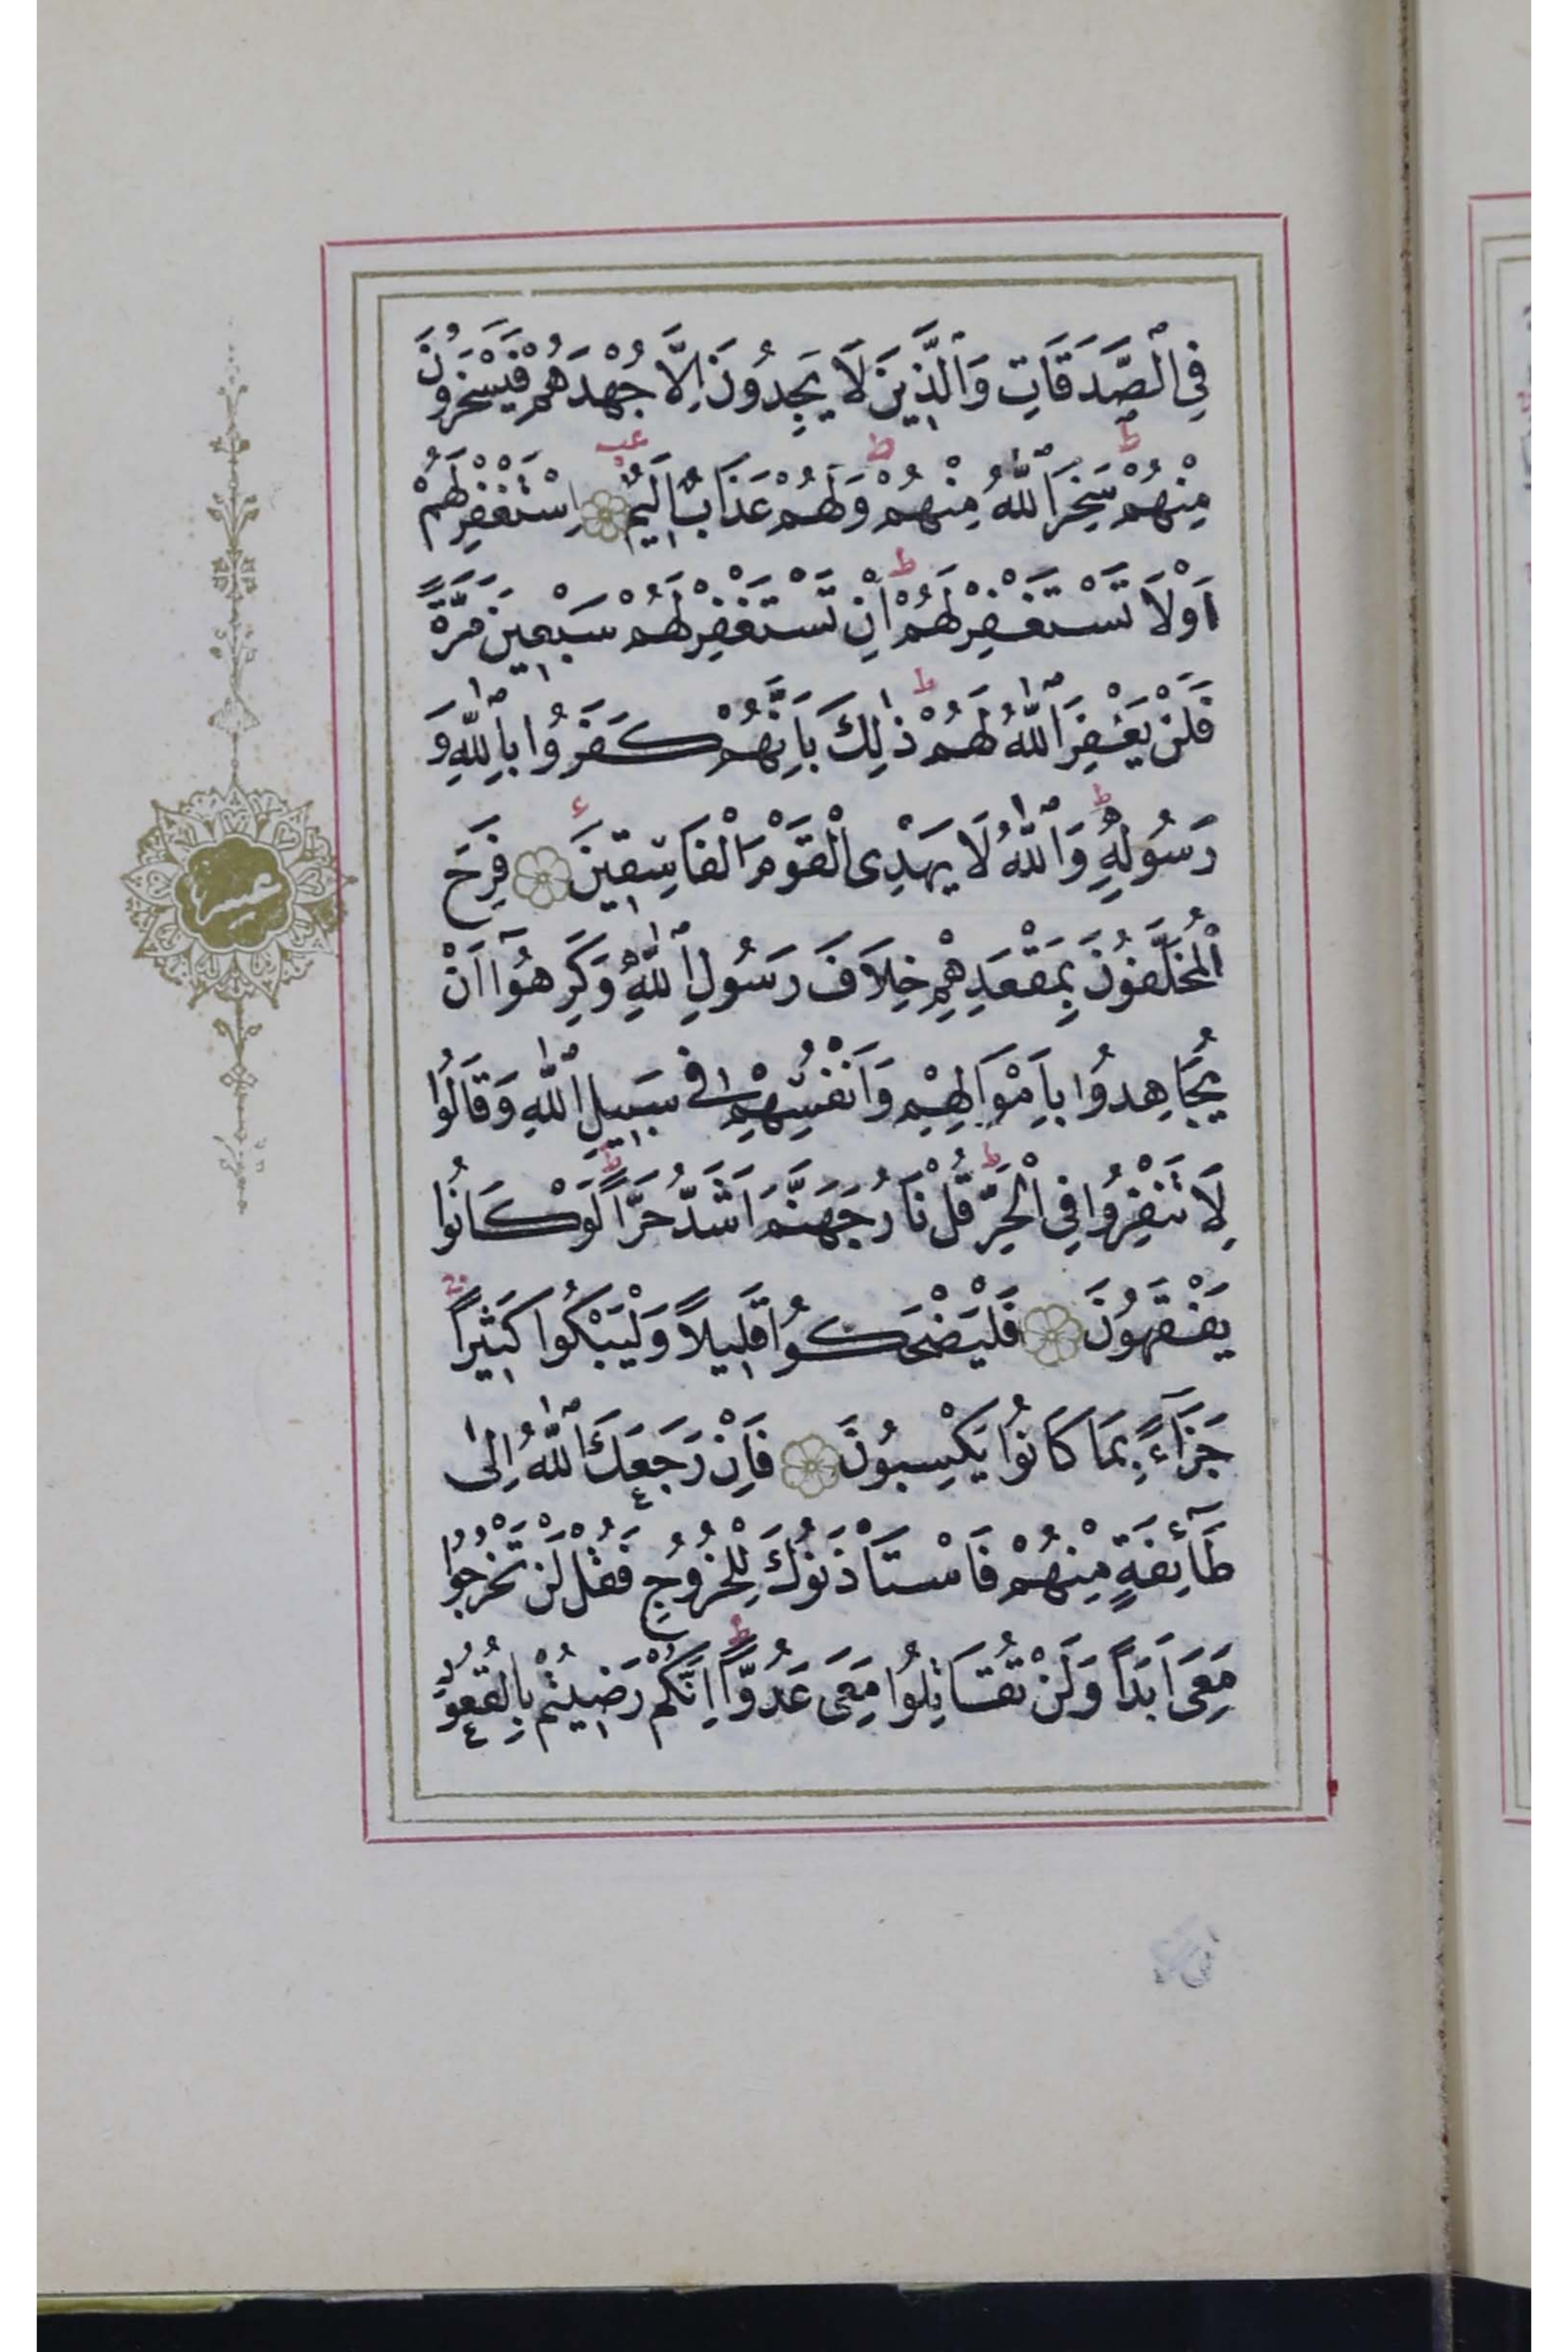 فِي ٱلصَّدَقَاتِ وَٱلَّذِينَ لَا يَجِدُونَ اِلَّا جُهْدَهُمْ فَيَسْخَرُونَ
مِنْهُمْ سَخِرَ ٱللّٰهُ مِنْهُمْ وَلَهُمْ عَذَابٌ اَلِيمٌ اِسْتَغْفِرْ لَهُمْ
اَوْ لَا تَسْتَغْفِرْ لَهُمْ اِنْ تَسْتَغْفِرْ لَهُمْ سَبْعِينَ مَرَّةً
فَلَنْ يَغْفِرَ ٱللّٰهُ لَهُمْ ذٰلِكَ بِاَنَّهُمْ كَفَرُوا بِٱللّٰهِ وَ
رَسُولِهِ وَٱللّٰهُ لَا يَهْدِى الْقَوْمَ الْفَاسِقِينَ فَرِحَ
الْمُخَلَّفُونَ بِمَقْعَدِهِمْ خِلَافَ رَسُولِ ٱللّٰهِ وَكَرِهُوٓا اَنْ
يُجَاهِدُوا بِاَمْوَالِهِمْ وَاَنْفُسِهِمْ فِى سَبِيلِ ٱللّٰهِ وَقَالُوا
لَا تَنْفِرُوا فِى الْحَرِّ قُلْ نَارُ جَهَنَّمَ اَشَدُّ حَرًّا لَوْ كَانُوا
يَفْقَهُونَ فَلْيَضْحَكُوا قَلِيلاً وَلْيَبْكُوا كَثِيراً
جَزَآءً بِمَا كَانُوا يَكْسِبُونَ فَاِنْ رَجَعَكَ ٱللّٰهُ اِلٰى
طَآئِفَةٍ مِنْهُمْ فَاسْتَأْذَنُوكَ لِلْخُرُوجِ فَقُلْ لَنْ تَخْرُجُوا
مَعِىَ اَبَدًا وَلَنْ تُقَاتِلُوا مَعِىَ عَدُوًّا اِنَّكُمْ رَضِيتُمْ بِالْقُعُودِ